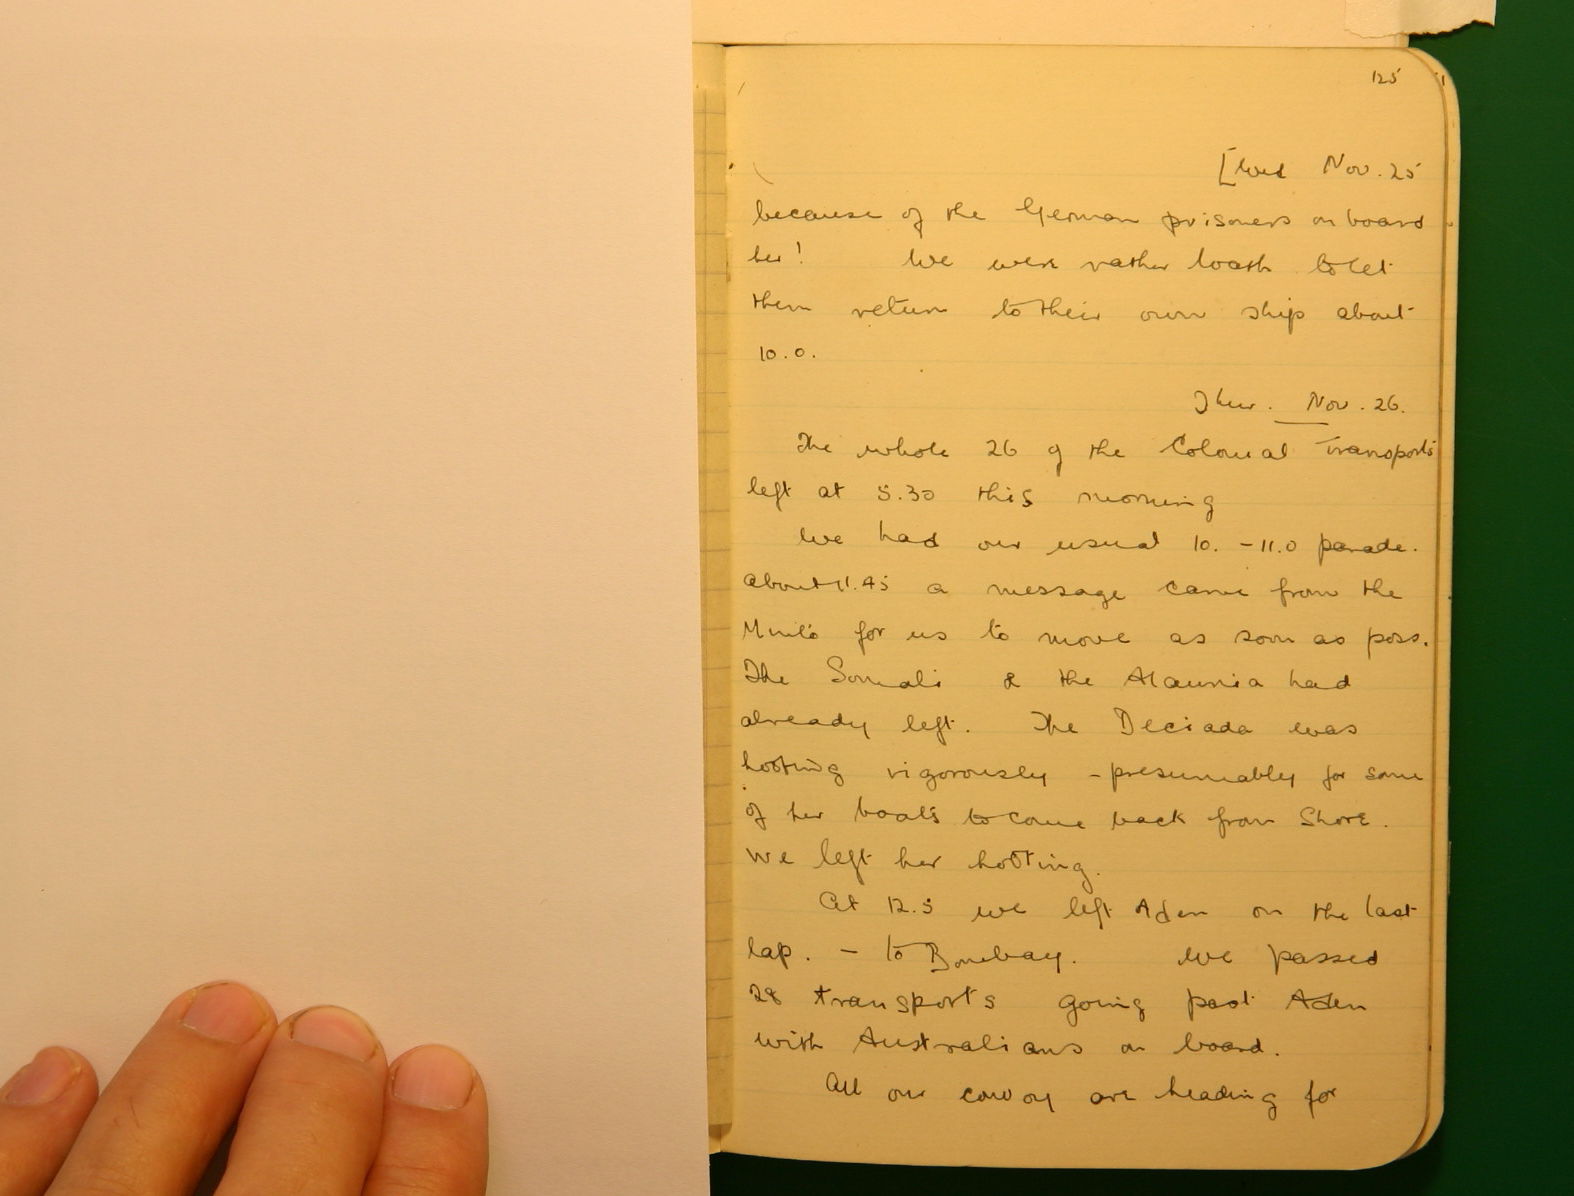 125
[Wed Nov. 25
because of the German prisoners on board
her! We were rather loath to let
them return to their own ship about
10.0.
Thur. Nov. 26.
The whole 26 of the Colonial Transports
left at 5.30 this morning
We had our usual 10. - 11.0 parade.
about 11.45 a message came from the
Minto for us to move as soon as poss.
The Somali & the Alaunia had
already left. The Deciada was
hooting vigorously - presumably for some
of her boats to come back from Shore.
we left her hooting.
At 12.5 we left Aden on the last
lap. - to Bombay. We passed
28 transports going past Aden
with Australians on board.
All our convoy are heading for